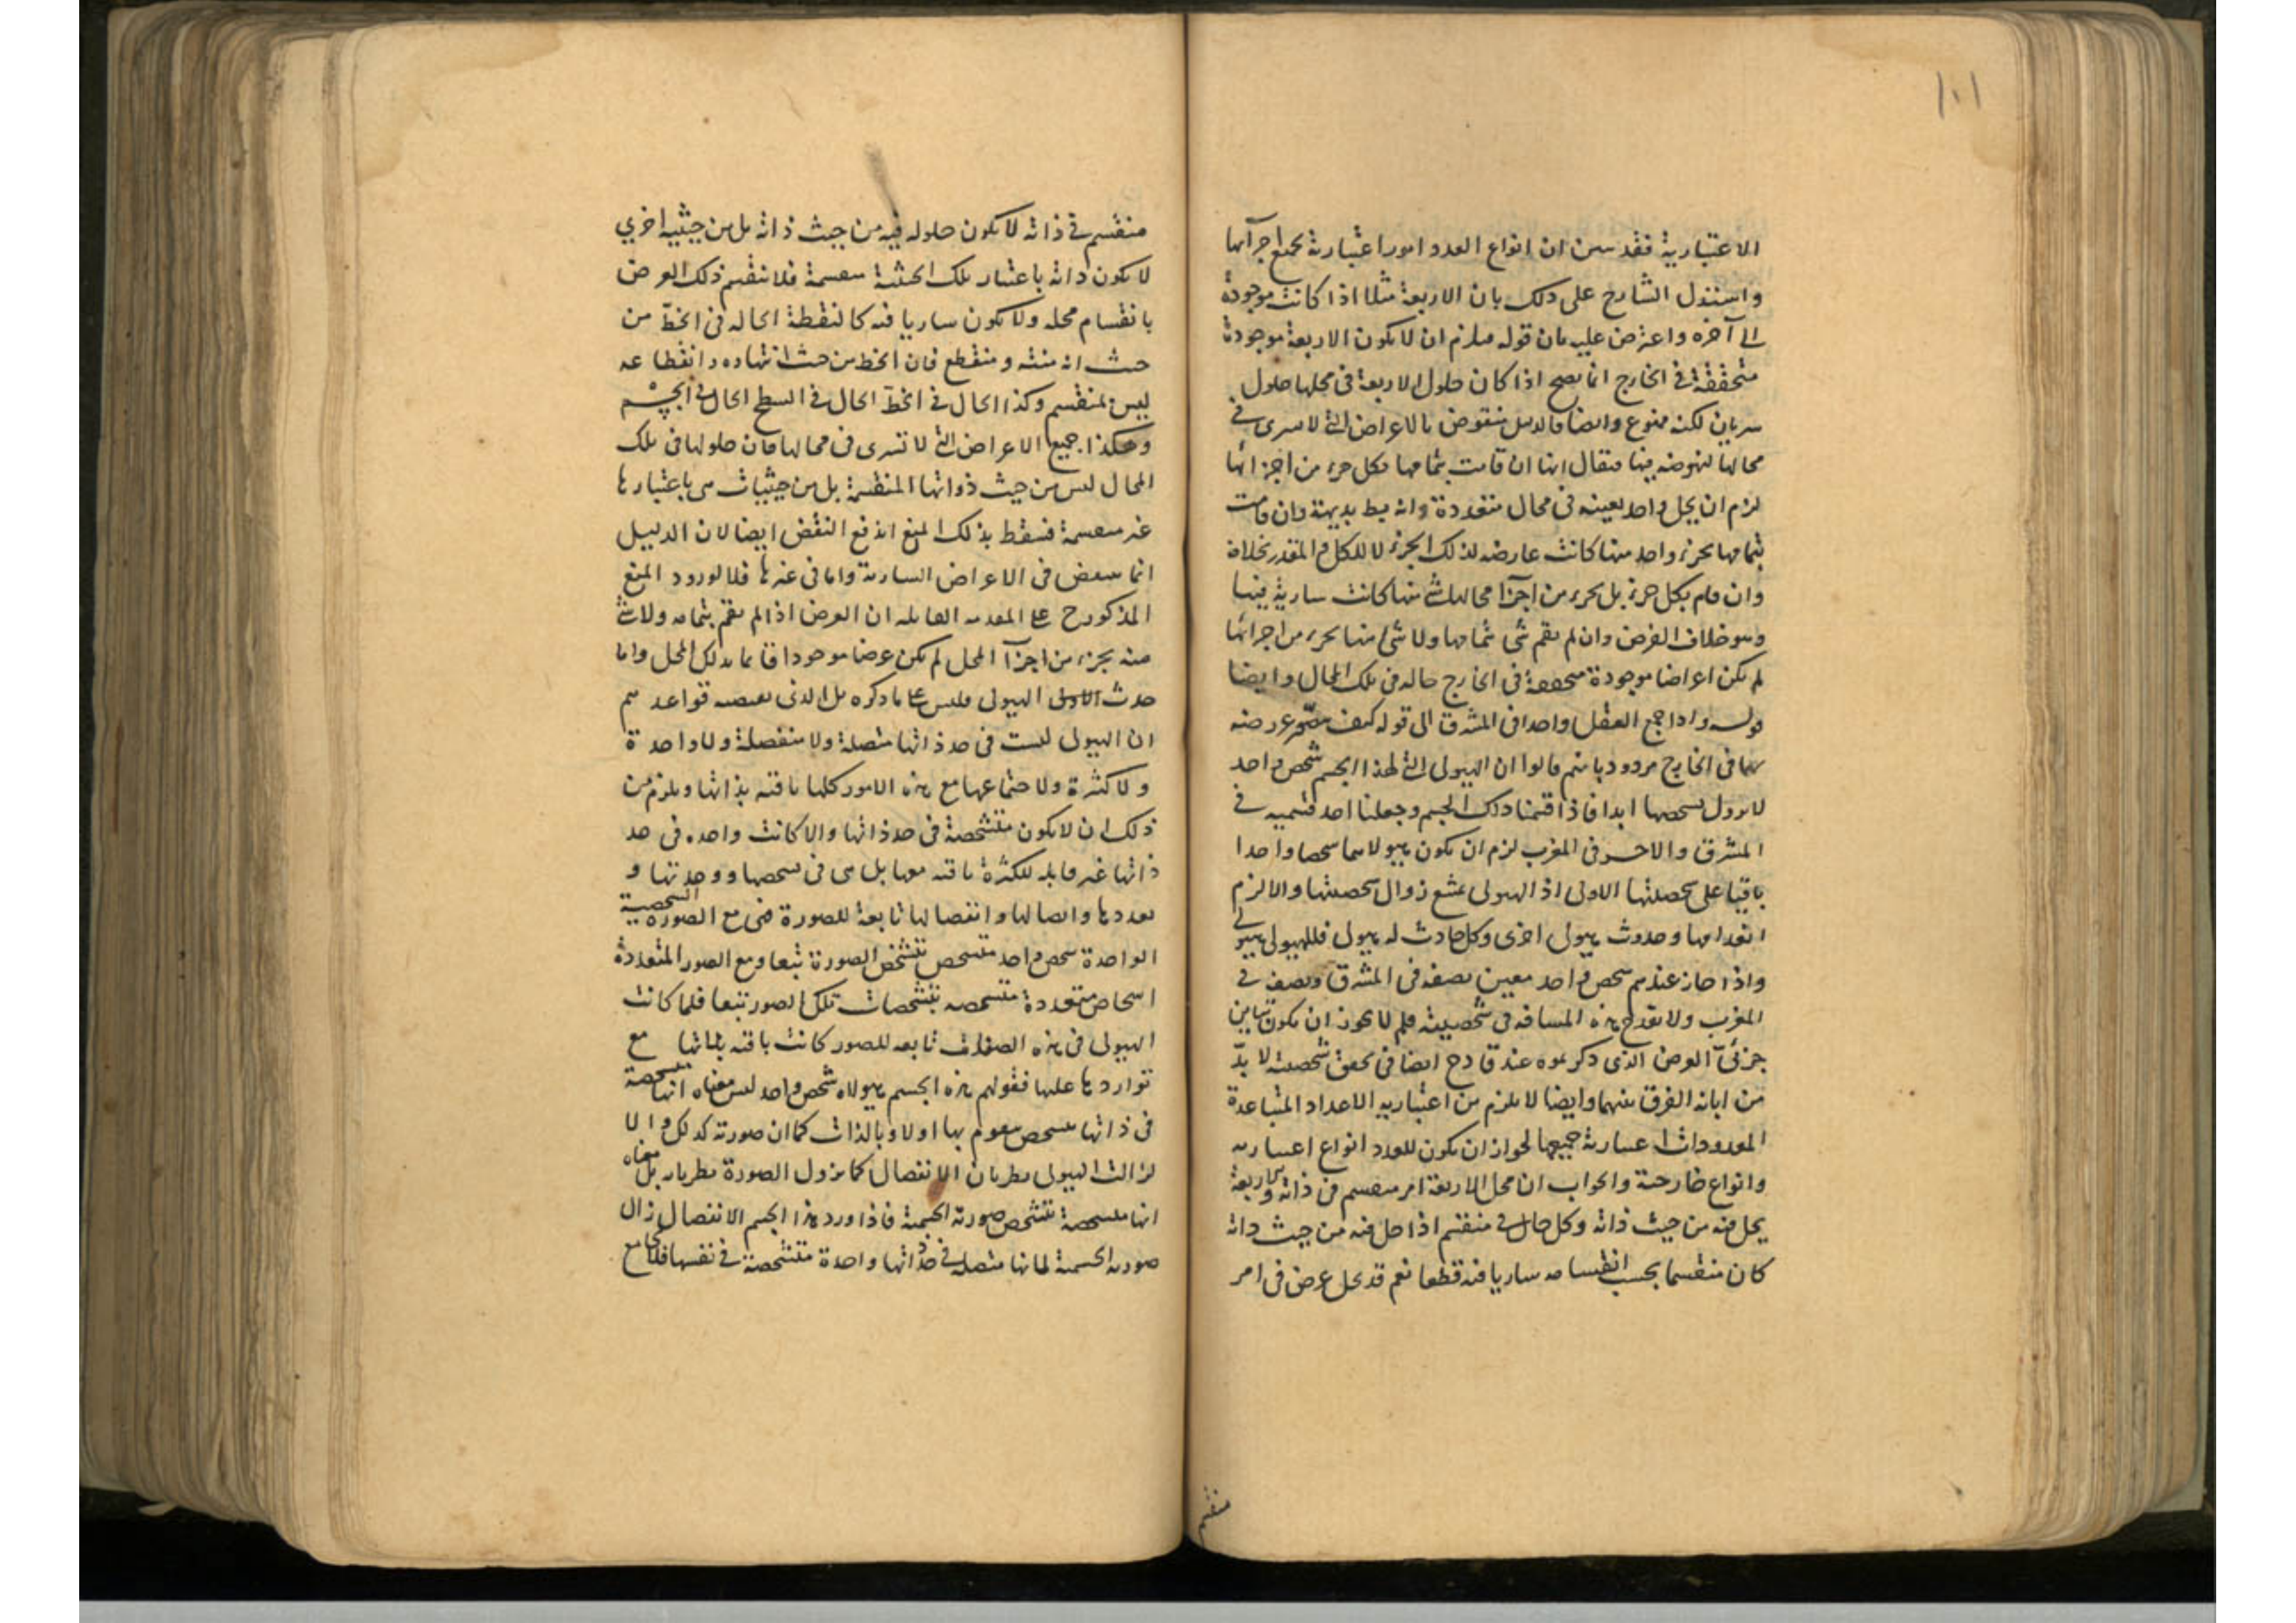 ١٠١
الاعتبارية فقد تبين ان انواع العدد امور اعتبارية بجميع اجزآئها
واستدل الشارح على ذلك بان الاربعة مثلا اذا كانت موجودة
الى آخره واعترض عليه بان قوله فيلزم ان لا يكون الاربعة موجودة
متحققة في الخارج انما يصح اذا كان حلول الاربعة في محلها حلول
سريان لكنه ممنوع وايضا فالدليل منقوض بالاعراض التي لا تسرى في
محالها لنهوضه فيها فيقال انها ان قامت بتمامها بكل جزء من اجزائها
لزم ان يحل واحد بعينه في محال متعددة وانه بط بديهة وان قامت
بتمامها بجزء واحد منها كانت عارضة لذلك الجزء لا للكل والمقدر خلافه
وان قام بكل جزء بل بجزء من اجزآ محالها شئ منها كانت سارية فيها
وهو خلاف الفرض وان لم يقم شئ بتمامها ولا شئ منها بجزء من اجزائها
لم يكن اعراضا موجودة متحققة في الخارج حالة في تلك المحال وايضا
قوله واذا جمع العقل واحدا في المشرق الى قوله كيف يتصور عروضه
لهما في الخارج مردود بانهم قالوا ان الهيولى التي لهذا الجسم شخص واحد
لا يزول تشخصها ابدا فاذا قسمنا ذلك الجسم وجعلنا احد قسميه في
المشرق والآخر في المغرب لزم ان يكون هيولاهما شخصا واحدا
باقيا على شخصيتها الاولى اذ الهيولى يمتنع زوال شخصيتها والا لزم
انعدامها وحدوث هيولى اخرى وكل حادث له هيولى فللهيولى هيولى
واذا جاز عندهم شخص واحد معين نصفه في المشرق ونصفه في
المغرب ولا يقدح هذه المسافة في شخصيته فلم لا يجوز ان يكون تباين
جزئى العرض الذى ذكرتموه عند قادح ايضا في تحقق شخصيته لا بدّ
من ابانة الفرق بينهما وايضا لا يلزم من اعتبارية الاعداد المتباعدة
المعدودات اعتبارية جميعها لجواز ان يكون للعدد انواع اعتبارية
وانواع خارجية والجواب ان محل الاربعة امر منقسم في ذاته والاربعة
يحل فيه من حيث ذاته وكل حال في منقسم اذا حل فيه من حيث ذاته
كان منقسما بحسب انقسامه ساريا فيه قطعا نعم قد يحل عرض في امر
منقسم
منقسم في ذاته لا يكون حلوله فيه من حيث ذاته بل من حيثية اخرى
لا يكون ذاته باعتبار تلك الحيثية منقسمة فلا ينقسم ذلك العرض
بانقسام محله ولا يكون ساريا فيه كالنقطة الحالة في الخطّ من
حيث انه منته ومنقطع فان الخط من حيث انتهاءه وانقطاعه
ليس بمنقسم وكذا الحال في الخطّ الحال في السطح الحال في الجسم
وهكذا جميع الاعراض التي لا تسرى في محالها فان حلولها في تلك
المحال ليس من حيث ذواتها المنقسمة بل من حيثيات هى باعتبارها
غير منقسمة فسقط بذلك المنع اندفع النقض ايضا لان الدليل
انما ينتهض في الاعراض السارية واما في غيرها فلا لورود المنع
المذكور ح على المقدمة القائلة ان العرض اذا لم يقم بتمامه ولا شئ
منه بجزء من اجزآ المحل لم يكن عرضا موجودا قائما بذلك المحل واما
حديث الهيولى فليس على ما ذكره بل الذى تقتضيه قواعدهم
ان الهيولى ليست في حد ذاتها متصلة ولا منفصلة ولا واحدة
ولا كثيرة ولاجتماعها مع هذه الامور كلها باقية بذاتها ويلزم من
ذلك ان لا يكون متشخصة في حد ذاتها والا كانت واحدة في حد
ذاتها غير قابلة للكثرة باقية معها بل هى في تشخصها ووحدتها و
تعددها واتصالها وانفصالها تابعة للصورة فهى مع الصورة الشخصية
الواحدة شخص واحد متشخص بتشخص الصورة تبعا ومع الصور المتعددة
اشخاص متعددة متشخصة بتشخصات تلك الصور تبعا فلما كانت
الهيولى في هذه الصفات تابعة للصور كانت باقية بذاتها مع
تواردها عليها فقولهم هذه الجسم هيولاه شخص واحد ليس معناه انها متشخصة
في ذاتها بتشخص يقوم بها اولا وبالذات كما ان صورته كذلك والا
لزالت الهيولى بطريان الانفصال كما يزول الصورة بطريانه بل معناه
انها متشخصة بتشخص صورته الجسمية فاذا ورد هذا الجسم الانفصال زال
صورته الجسمية لانها متصلة في حد ذاتها واحدة متشخصة في نفسها فلا يجامع